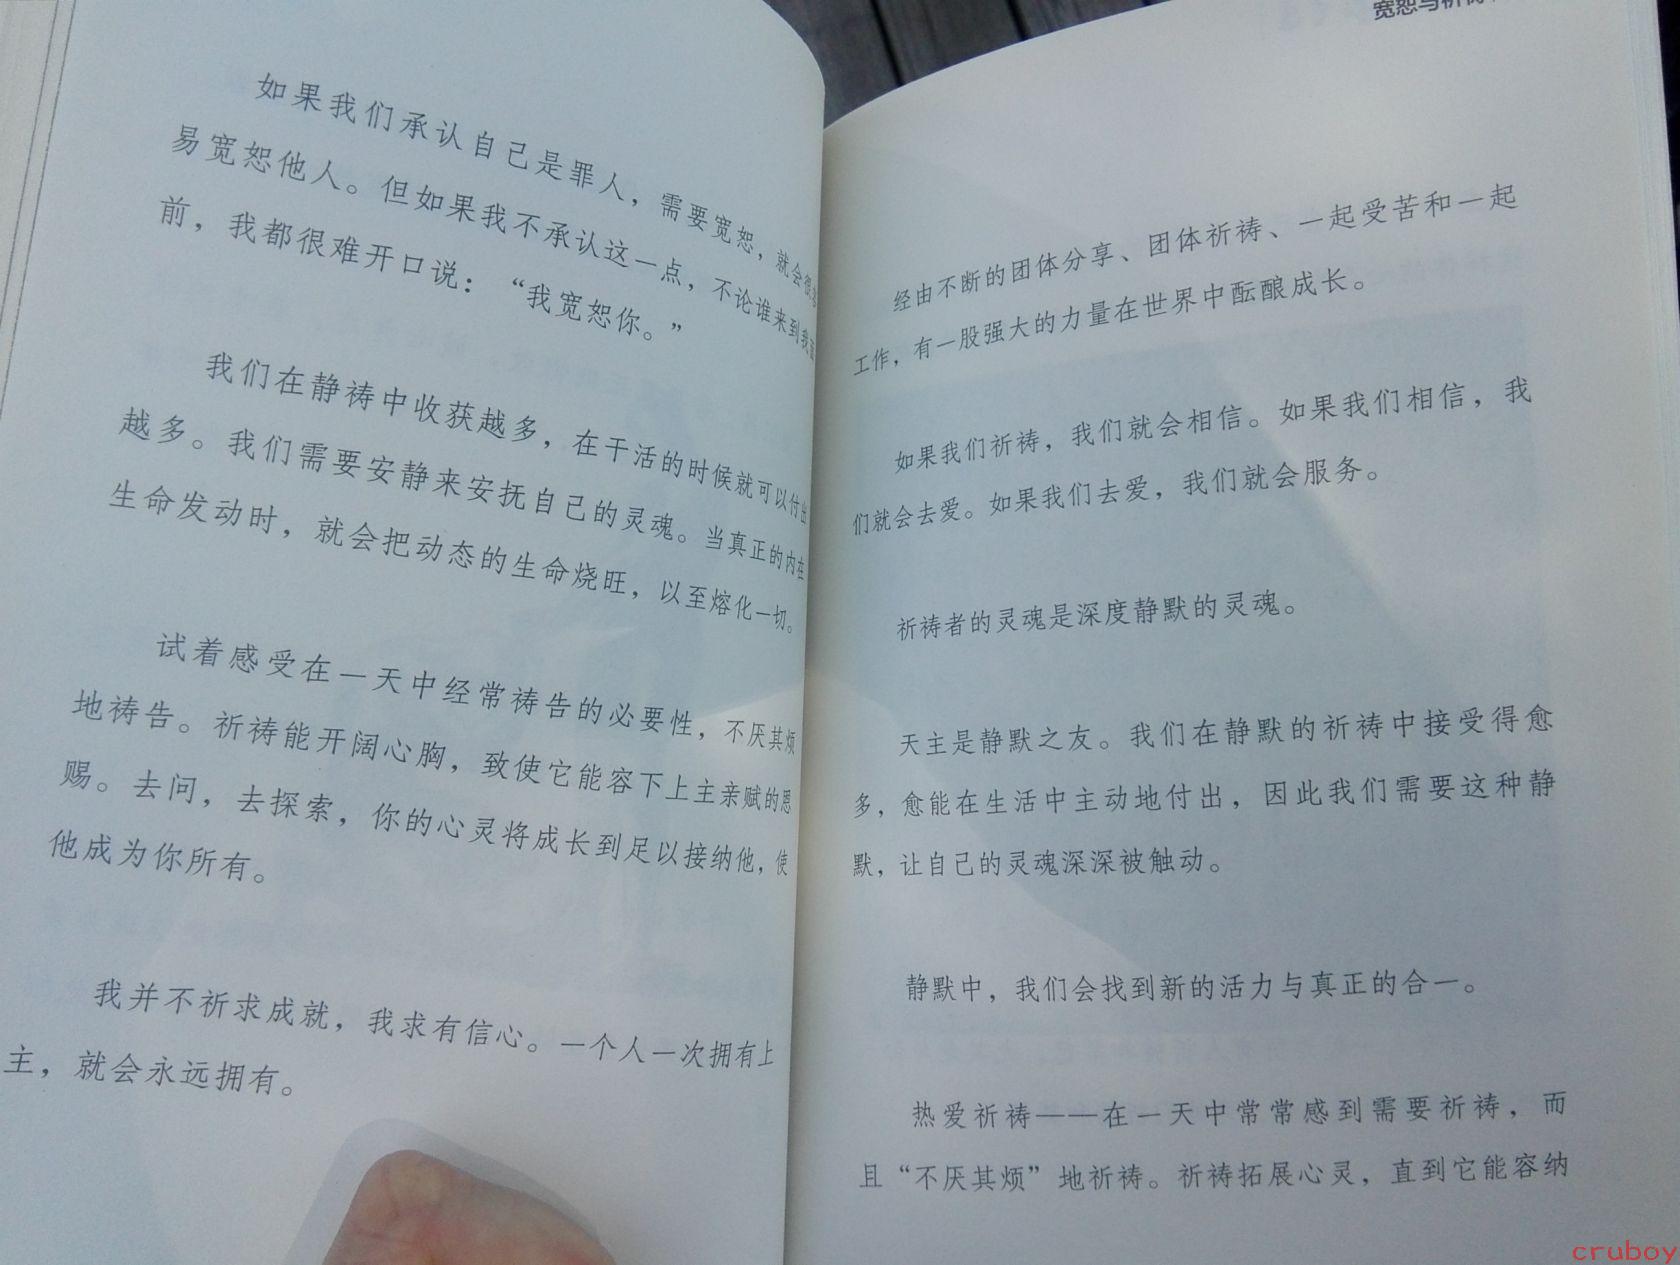 如果我们承认自己是罪人，需要宽恕，就会很容
易宽恕他人。但如果我不承认这一点，不论谁来到我面
前，我都很难开口说：“我宽恕你。”
我们在静祷中收获越多，在干活的时候就可以付出
越多。我们需要安静来安抚自己的灵魂。当真正的内在
生命发动时，就会把动态的生命烧旺，以至熔化一切。
试着感受在一天中经常祷告的必要性，不厌其烦
地祷告。祈祷能开阔心胸，致使它能容下上主亲赋的恩
赐。去问，去探索，你的心灵将成长到足以接纳他，使
他成为你所有。
我并不祈求成就，我求有信心。一个人一次拥有上
主，就会永远拥有。
宽恕与祈祷
经由不断的团体分享、团体祈祷、一起受苦和一起
工作，有一股强大的力量在世界中酝酿成长。
如果我们祈祷，我们就会相信。如果我们相信，我
们就会去爱。如果我们去爱，我们就会服务。
祈祷者的灵魂是深度静默的灵魂。
天主是静默之友。我们在静默的祈祷中接受得愈
多，愈能在生活中主动地付出，因此我们需要这种静
默，让自己的灵魂深深被触动。
静默中，我们会找到新的活力与真正的合一。
热爱祈祷——在一天中常常感到需要祈祷，而
且“不厌其烦”地祈祷。祈祷拓展心灵，直到它能容纳
cruboy